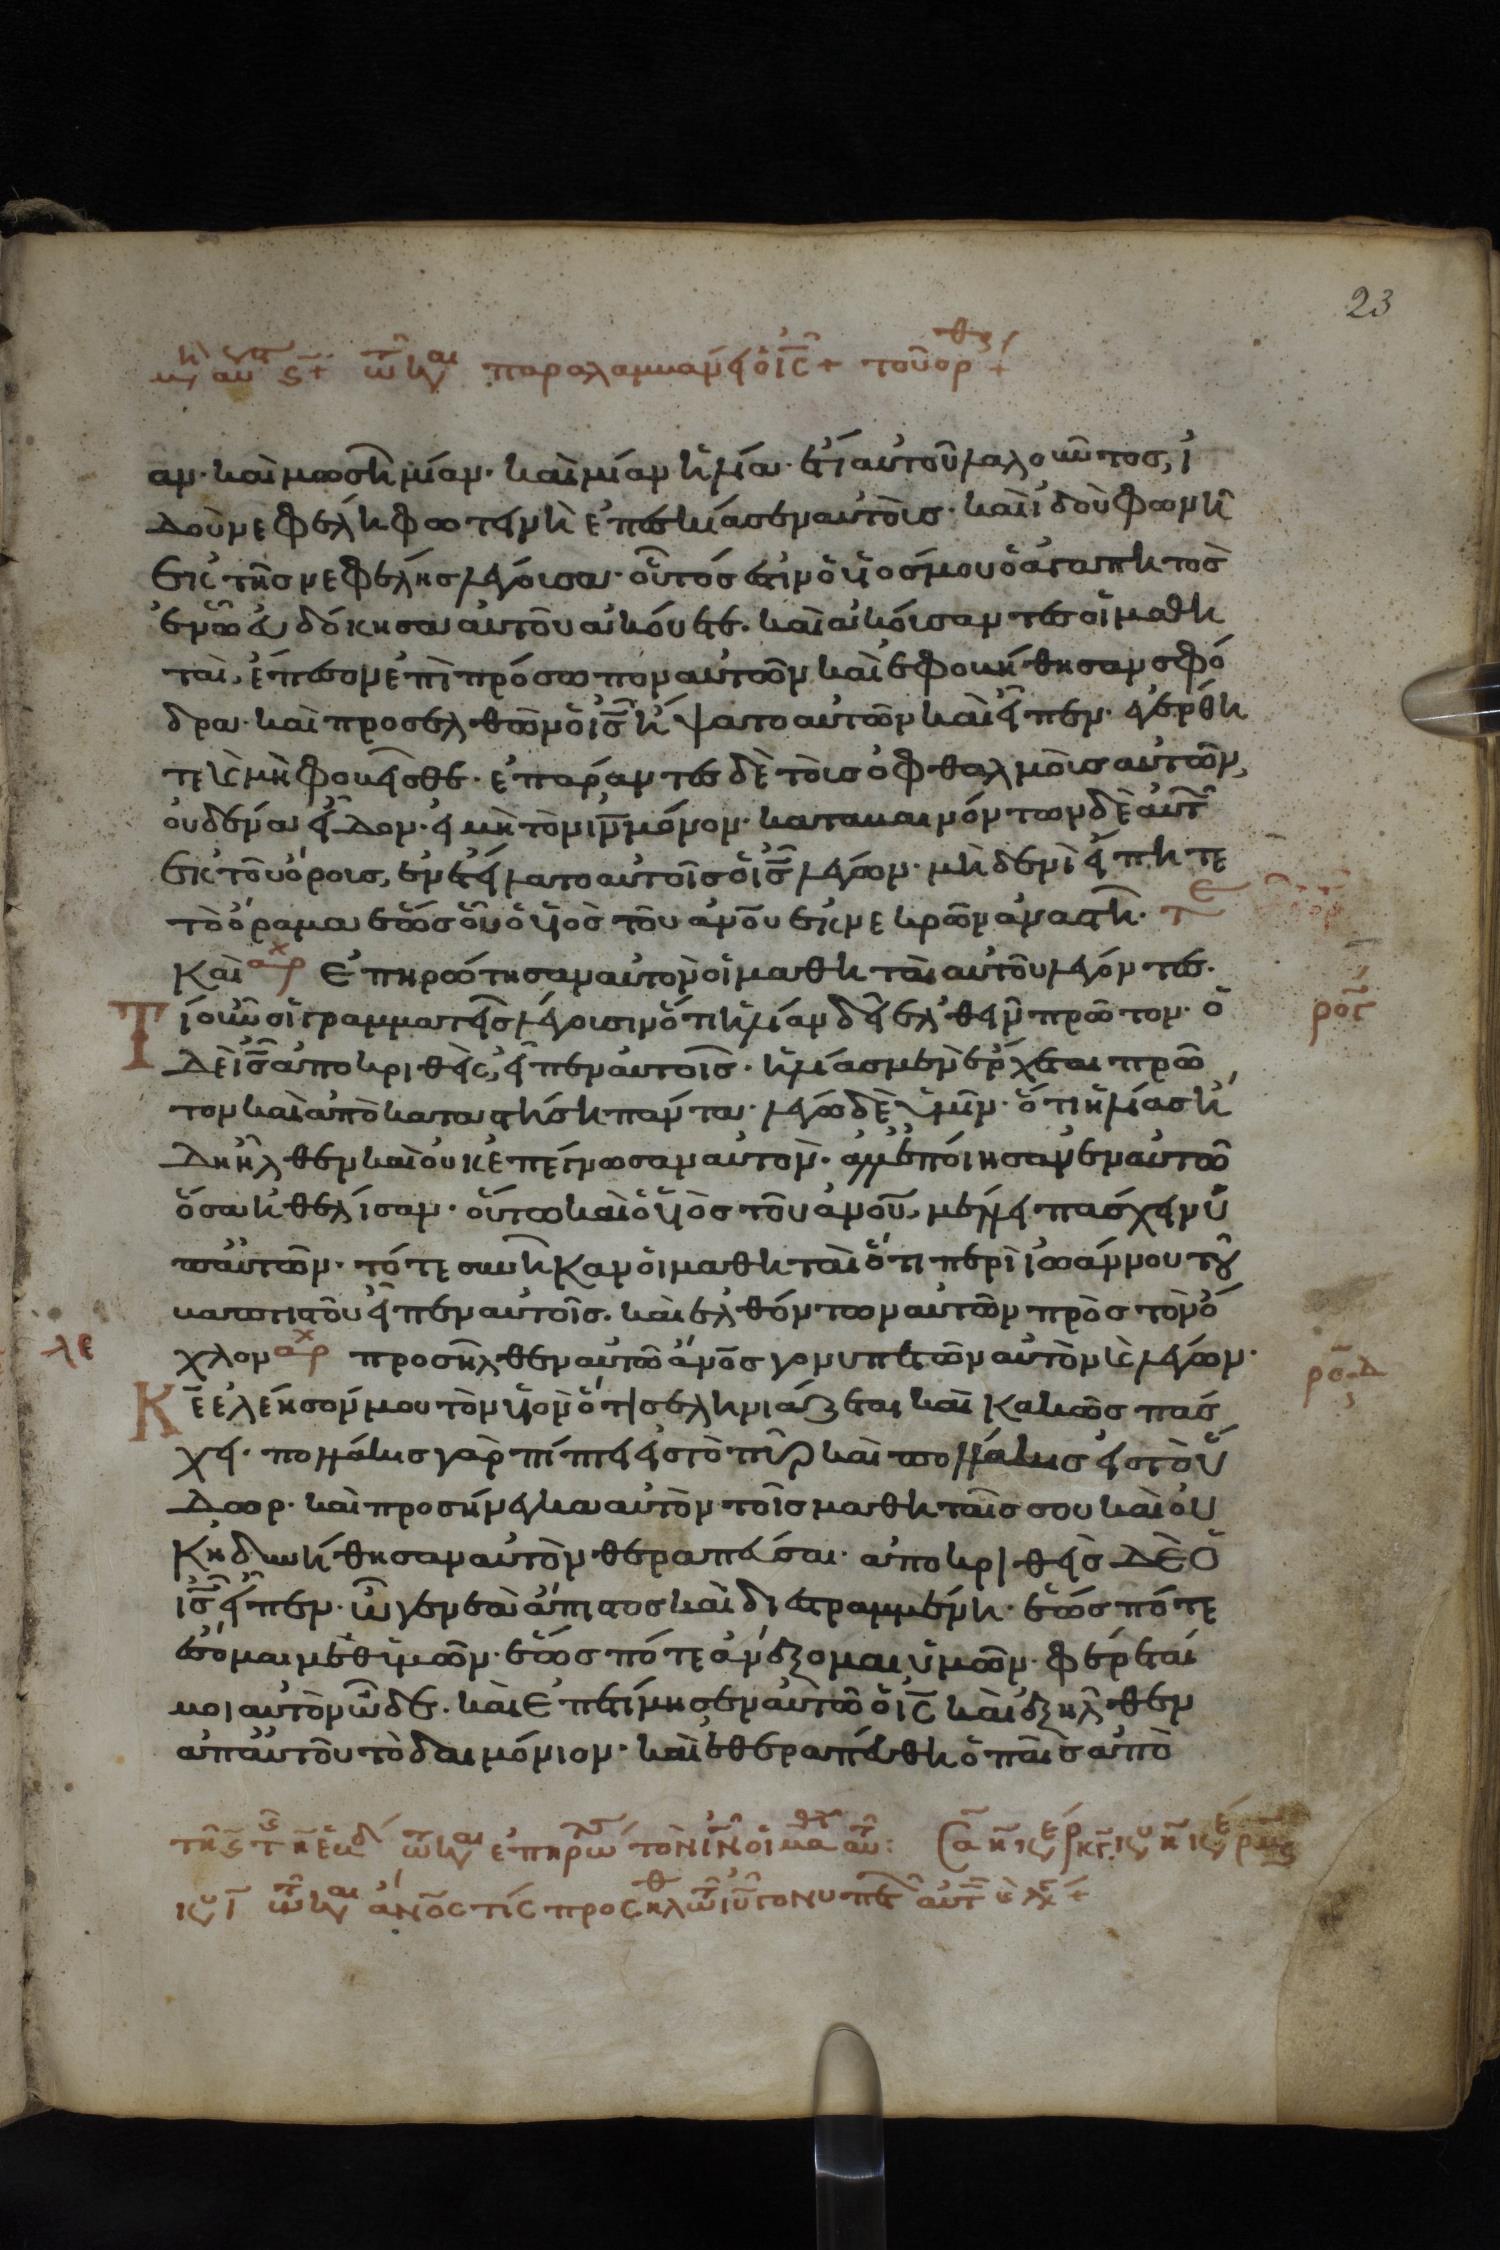 23
αν· καὶ μωσῆ μίαν· καὶ μίαν ἡλία· ἔτι αὐτοῦ λαλοῦντος, ἰ
δοὺ νεφέλη φωτεινὴ ἐπεσκίασεν αὐτοῖς· καὶ ἰδοὺ φωνὴ
ἐκ τῆς νεφέλης λέγουσα· οὗτός ἐστιν ὁ ὑιός μου ὁ ἀγαπητὸς
ἐν ὧ εὐδόκησα αὐτοῦ ἀκούετε· καὶ ἀκούσαντες οἱ μαθη
ταὶ, ἔπεσον ἐπὶ πρόσωπον αὐτῶν καὶ ἐφοβήθησαν σφό
δρα· καὶ προσελθὼν ὁ ις ἥψατο αὐτῶν καὶ εἶπεν· ἐγέρθη
τε καὶ μὴ φοβεῖσθε· ἐπάραντες δὲ τοὺς ὀφθαλμοὺς αὐτῶν,
οὐδένα εἶδον· εἰ μὴ τὸν ιν μόνον· καταβαινόντων δὲ αὐτ
ἐκ τοῦ ὄρους, ἐνετείλατο αὐτοῖς ὁ ις λέγων· μηδενὶ εἴπητε
τὸ ὅραμα ἕως οὗ ὁ ὑιὸς τοῦ ανου ἐκ νεκρῶν ἀναστῆ· τε
Καὶ αρχ ἐπηρώτησαν αὐτὸν οἱ μαθηταὶ αὐτοῦ λέγοντες·
Τί οὖν οἱ γραμματεῖς λέγουσιν ὅτι ἡλίαν δεῖ ἐλθεῖν πρῶτον· ὁ
δὲ ις ἀποκριθεὶς, εἶπεν αὐτοῖς· ἡλίας μὲν ἔρχεται πρῶ
τον καὶ ἀποκαταστήση πάντα· λέγω δὲ ὑμῖν· ὅτι ἡλίας ἤ
δη ἦλθεν καὶ οὐκ ἐπέγνωσαν αὐτὸν· ἀλλ' ἐποίησαν ἐν αὐτῶ
ὅσα ἠθέλισαν· οὕτω καὶ ὁ ὑιὸς τοῦ ανου, μέλλει πάσχειν ὑ
π' αὐτῶν· τότε συνῆκαν οἱ μαθηταὶ ὅτι περὶ ἰωάννου τοῦ
βαπτιστοῦ εἶπεν αὐτοῖς· καὶ ἐλθόντων αὐτῶν πρὸς τὸν ὄ
λε
χλον αρχ προσῆλθεν αὐτῶ ανος γονυπετῶν αὐτὸν καὶ λέγων·
Κε ἐλέησόν μου τὸν ὑιὸν ὅτι σεληνιάζεται καὶ κακῶς πάσ
χει· πολλάκις γὰρ πίπτει εἰς τὸ πῦρ καὶ πολλάκις εἰς τὸ ὕ
δωρ· καὶ προσήνεγκα αὐτὸν τοῖς μαθηταῖς σου καὶ οὐ
κ ἠδυνήθησαν αὐτὸν θεραπεῦσαι· ἀποκριθεὶς δὲ ὁ
ις εἶπεν· ὦ γενεὰ ἄπιστος καὶ διεστραμμένη· ἕως πότε
ἔσομαι μεθ' ὑμῶν· ἕως πότε ἀνέξομαι ὑμῶν· φέρεταί
μοι αὐτὸν ὧδε· καὶ ἐπετίμησεν αὐτῶ ὁ ις καὶ ἐξῆλθεν
ἀπ' αὐτοῦ τὸ δαιμόνιον· καὶ ἐθεραπεύθη ὁ παῖς ἀπὸ